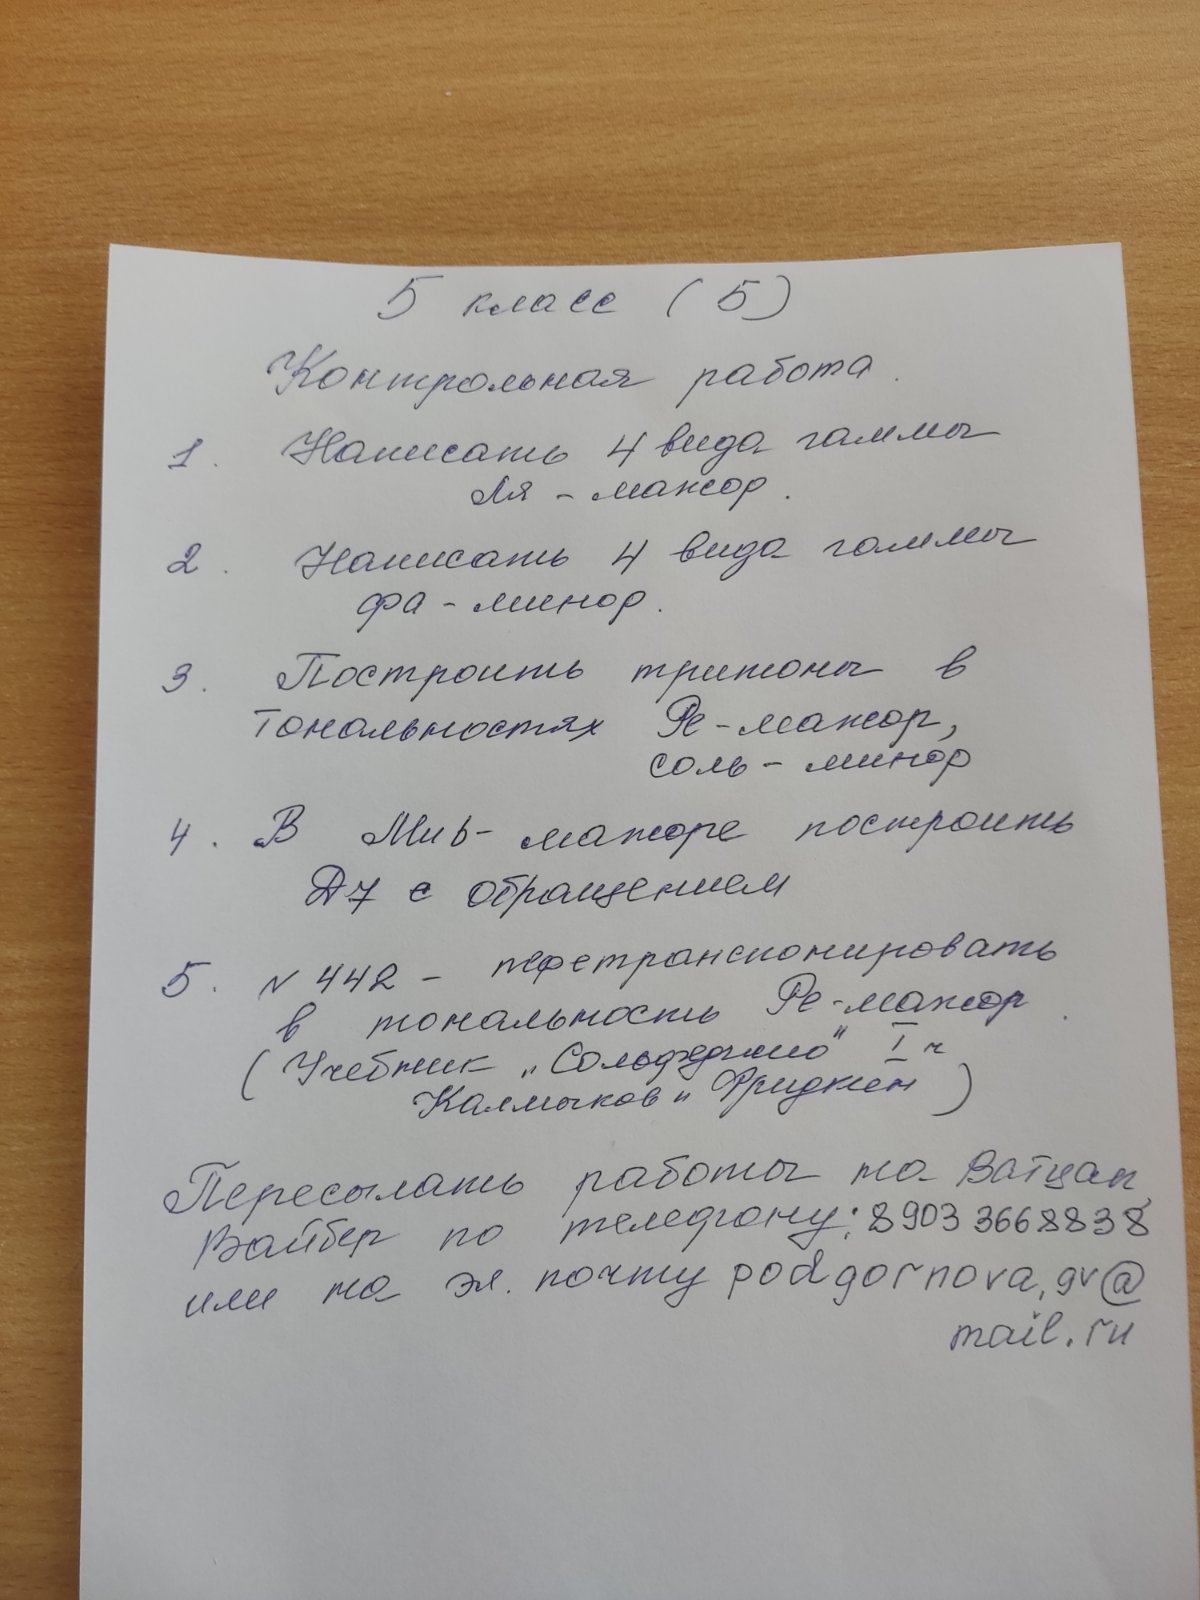 5 класс (5)
Контрольная работа.
1. Написать 4 вида гаммы
Ля - мажор.
2. Написать 4 вида гаммы
фа - минор.
3. Построить тритоны в
тональностях Ре - мажор,
соль - минор
4. В Ми b - мажоре построить
Д7 с обращением
5. N 442 - перетранспонировать
в тональность Ре - мажор.
(Учебник „Сольфеджио" I ч
Калмыков и Фридкин)
Пересылать работы на Ватцап,
Вайбер по телефону: 8903 3668838
или на эл. почту podgornova.gv@
mail.ru